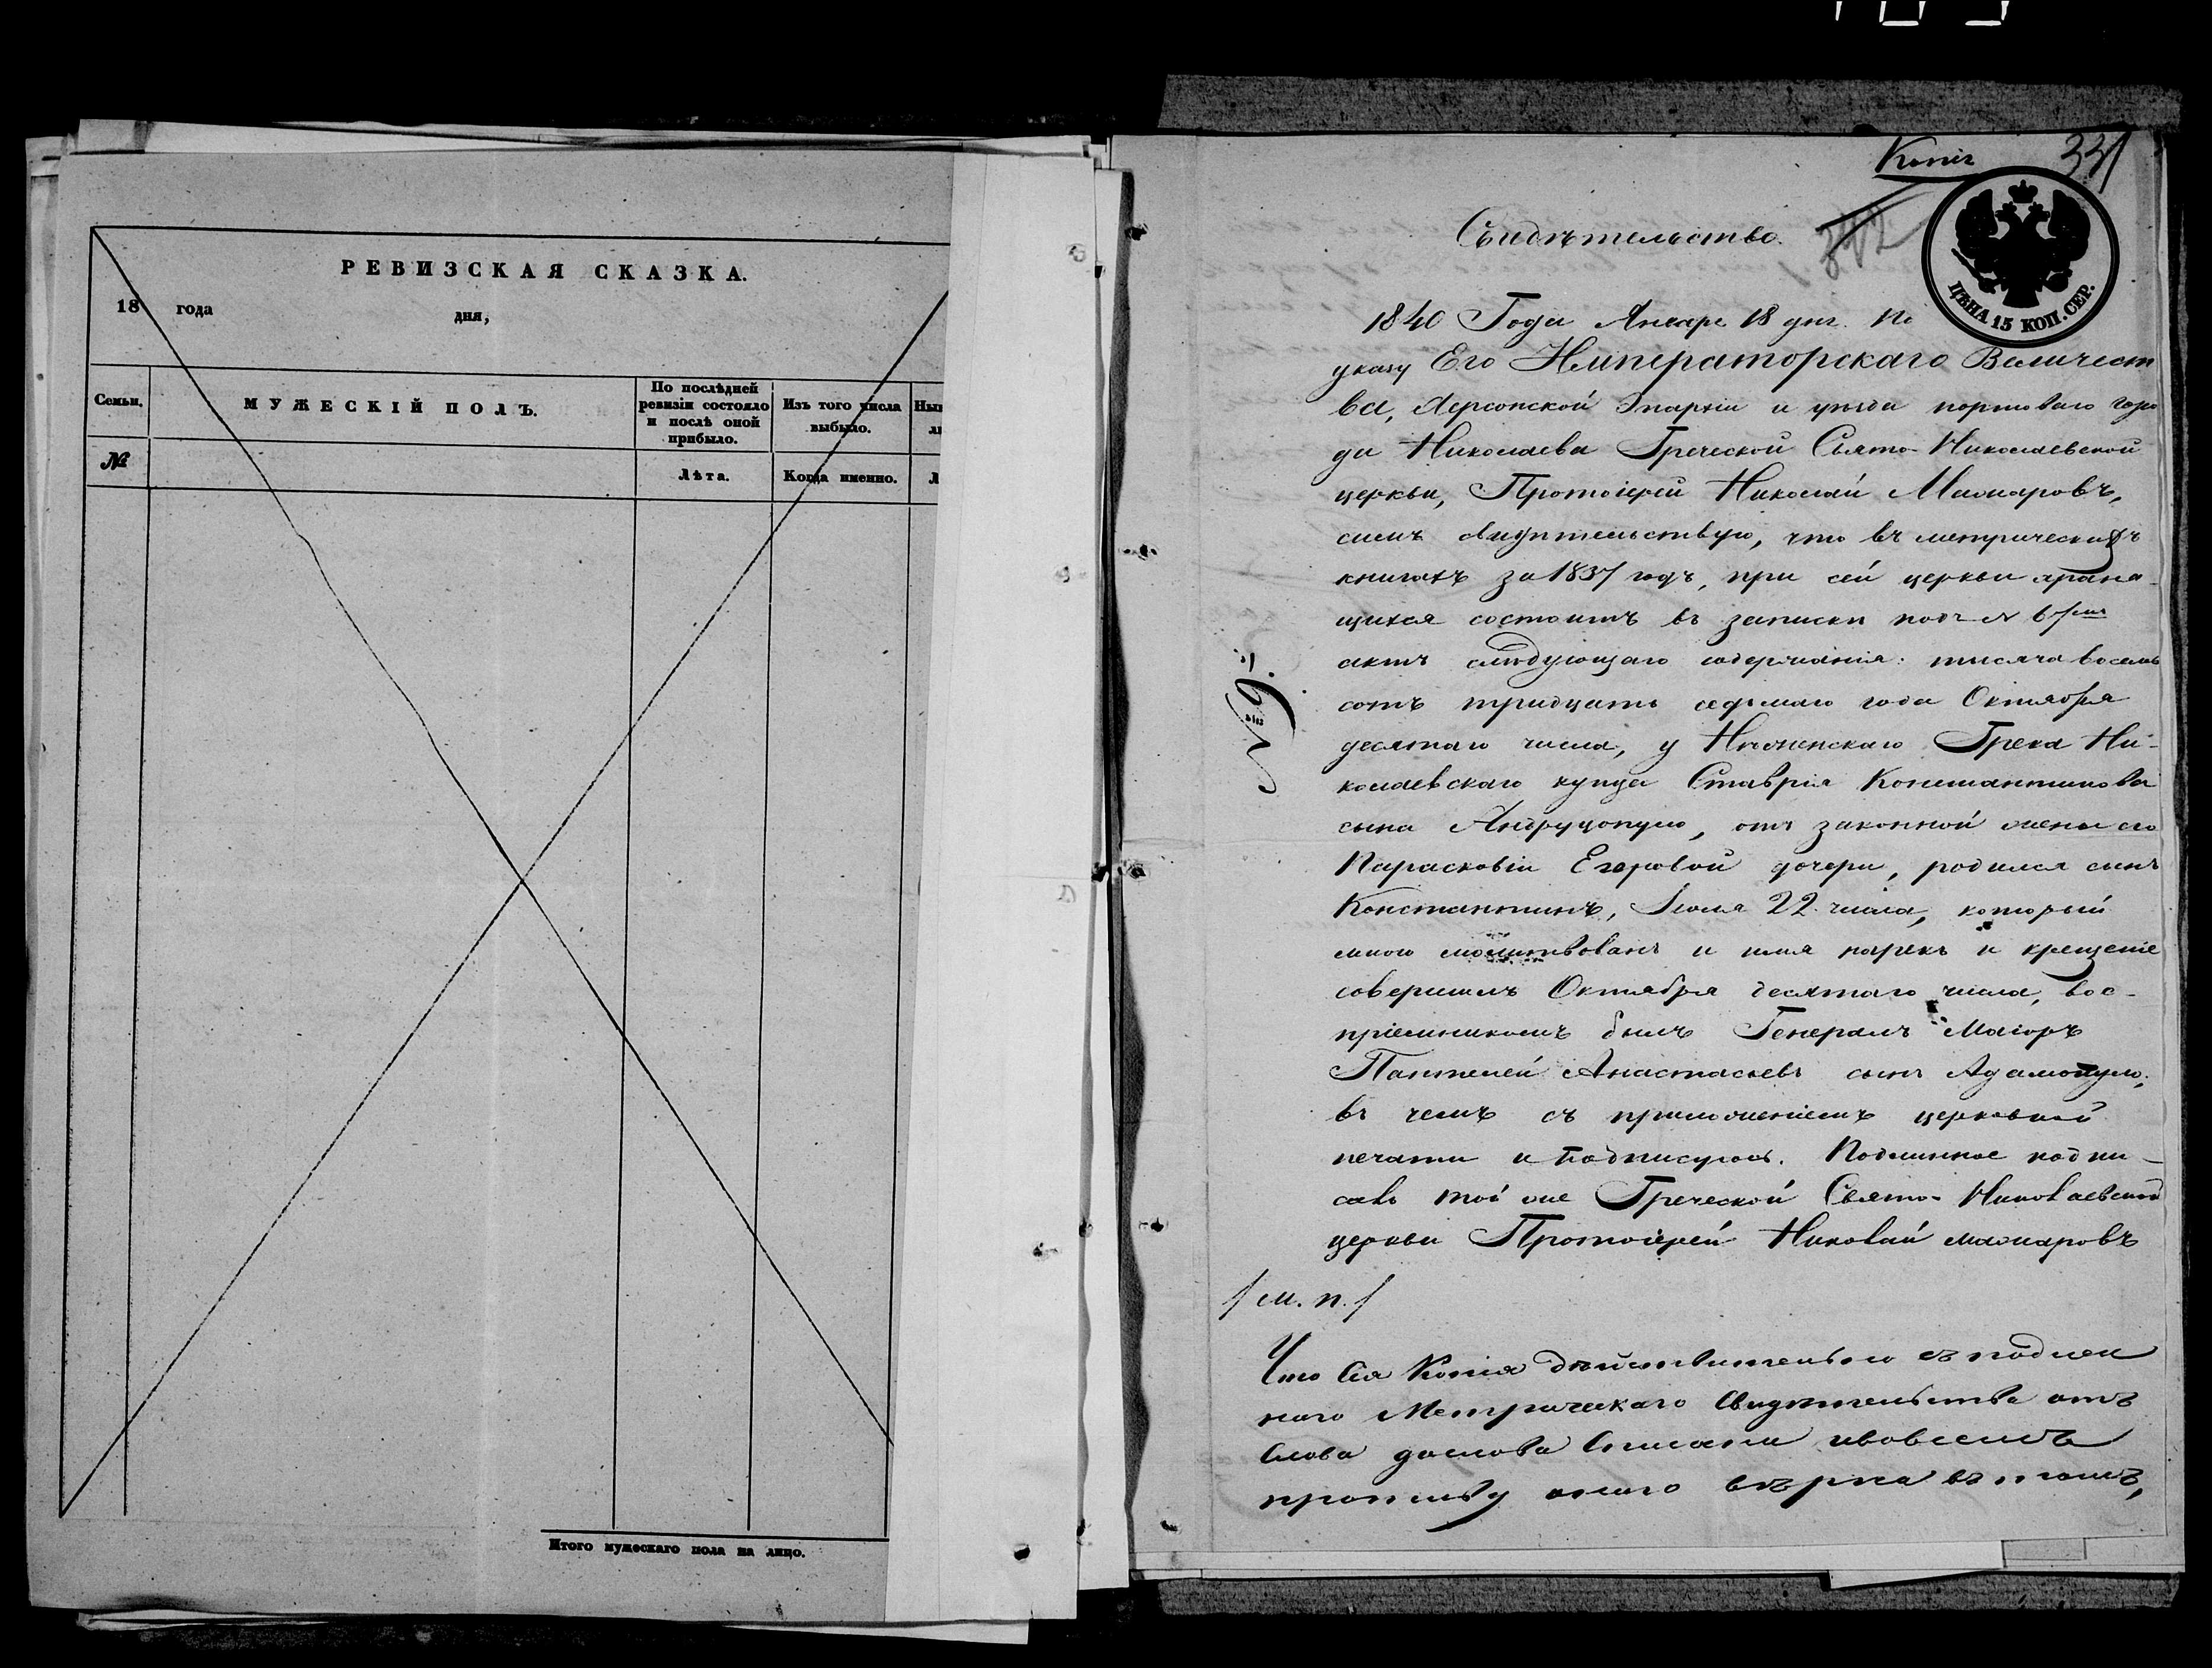 РЕВИЗСКАЯ СКАЗКА.
18 года дня,
Семьи.
МУЖЕСКІЙ ПОЛЪ.
По послѣдней
ревизіи состояло
и послѣ оной
прибыло.
Изъ того числа
выбыло.
№
Лѣта.
Когда именно.
Итого мужескаго пола на лицо.
Копія
331
ЦѢНА 15 КОП. СЕР.
Свидѣтельство.
1840 Года Января 18 дня. По
указу Его Императорскаго Величест
ва, Херсонской Эпархіи и уѣзда портоваго горо
да Николаева Греческой Свято-Николаевской
церкви, Протоіерей Николай
симъ свидѣтельствую, что въ метрическихъ
книгахъ за 1837 годъ, при сей церкви храня-
щихся состоитъ въ записки подъ №
актъ слѣдующаго содержанія: тысяча восемь
сотъ тридцать седьмаго года Октября
десятаго числа, у Нѣженскаго Грека Ни-
колаевскаго купца Ставрія Константинова
сына Андруцопуло, отъ законной жены его
Парасковіи Егоровой дочери, родился сынъ
Константинъ, Іюля 22 числа, который
мною молитвованъ и имя нарекъ и крещеніе
совершилъ Октября десятаго числа, вос-
пріемникомъ былъ Генералъ Маіоръ
Пантелей Анастасьевъ сынъ Адамопуло,
въ чемъ съ приложеніемъ церковной
печати и подписуюсь. Подлинное подпи-
савъ той же Греческой Свято-Николаевской
церкви Протоіерей Николай
/ м. п. /
№ 9.
Что сія Копія дѣйствительно съ подлен
наго Метрическаго Свидѣтельства отъ
Слова дослова Списана ивовсемъ
противу онаго вѣрна въ томъ,